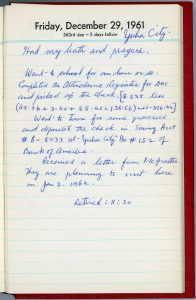 Friday, December 29, 1961
363rd day – 2 days follow
Yuba City
Had my bath and prayers.
Went to school for an hour or so.
Completed the Attendance Register for Dec
and picked up the check. $ 535 less
Went to Town for some groceries
and deposited the check in Saving Acct
# 6-8033 at Yuba City Br # 152 of
Bank of America.
Received a letter from McGraths
They are planning to visit here
on Jan 2. 1962.
Retired - 11:30